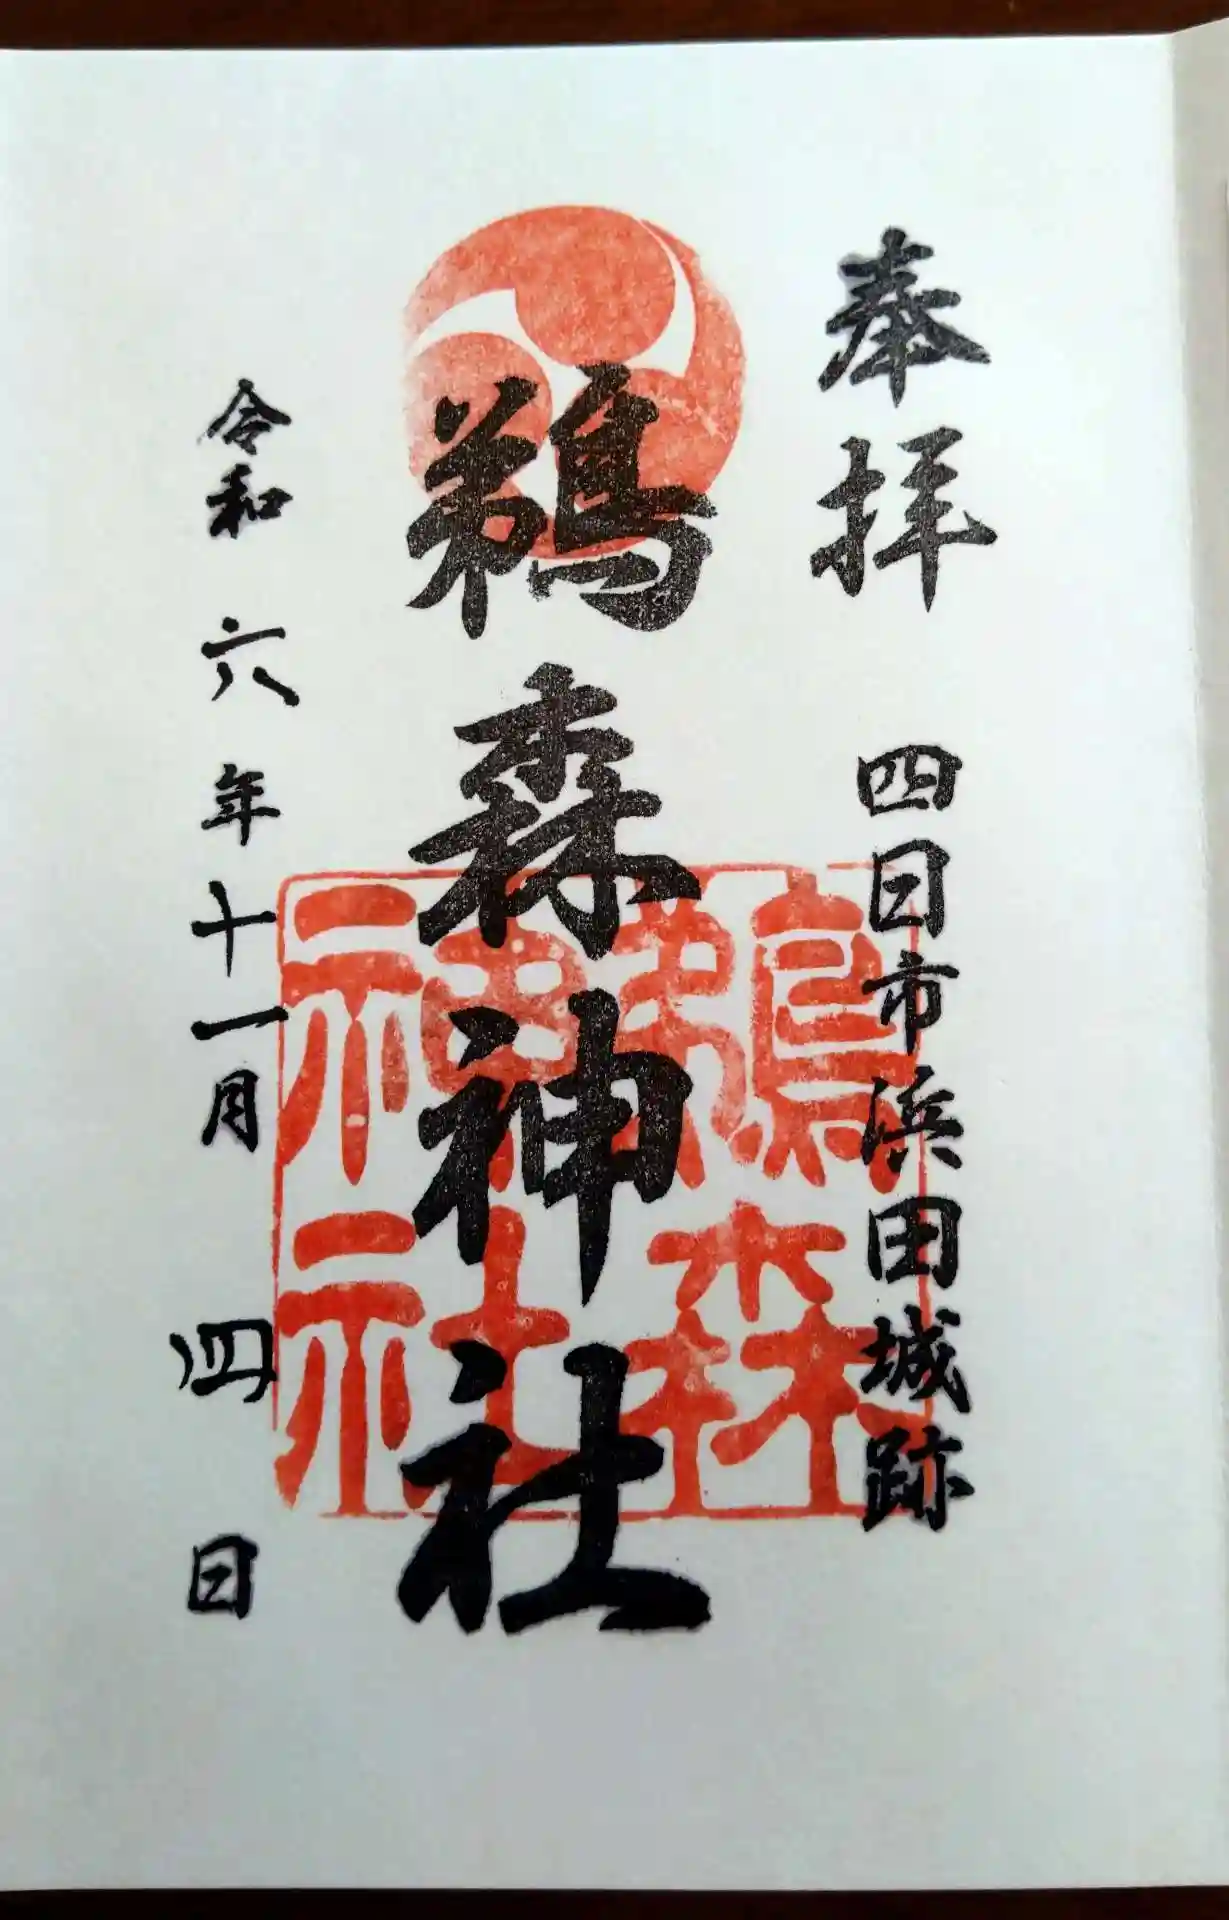 奉拝
四日市浜田城跡
鵜森神社
鵜森
神社
令和六年十一月四日